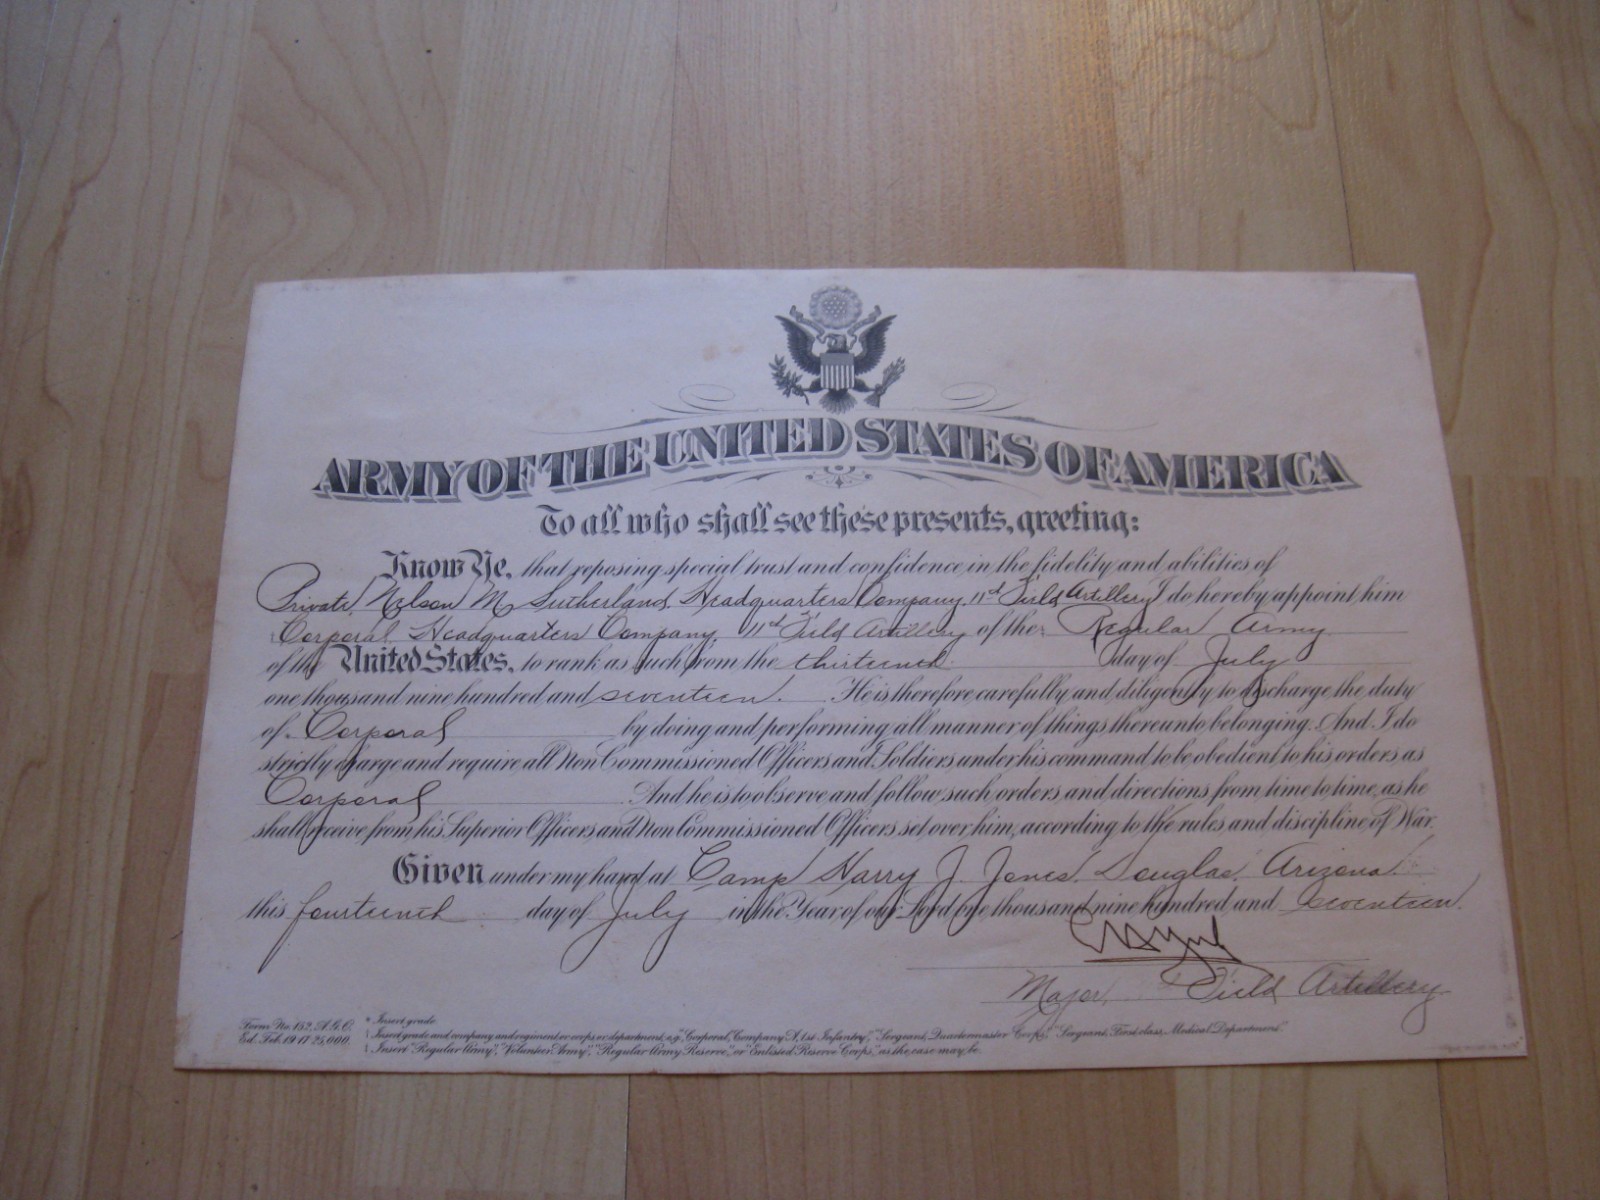 ARMY OF THE UNITED STATES OF AMERICA
To all who shall see these presents, greeting:
Know Ye, that reposing special trust and confidence in the fidelity and abilities of
Private, Nelson M Sutherland, Headquarters Company, 11th Field Artillery I do hereby appoint him
Corporal, Headquarters Company, 11th Field Artillery of the Regular Army
of the United States, to rank as such from the thirteenth day of July
one thousand nine hundred and seventeen. He is therefore carefully and diligently to discharge the duty
of Corporal by doing and performing all manner of things thereunto belonging. And I do
strictly charge and require all Non Commissioned Officers and Soldiers under his command to be obedient to his orders as
Corporal And he is to observe and follow such orders and directions from time to time, as he
shall receive from his Superior Officers and Non Commissioned Officers set over him, according to the rules and discipline of War.
Given under my hand at Camp Harry J. Jones, Douglas, Arizona.
this fourteenth day of July in the Year of our Lord one thousand nine hundred and seventeen.
Major, Field Artillery
Form No. 152, A.G.O.
Ed. Feb. 19 17-25,000.
* Insert grade.
† Insert grade and company and regiment or corps or department, e.g., "Corporal, Company A, 1st Infantry," "Sergeant, Quartermaster Corps," "Sergeant, First class, Medical Department."
‡ Insert "Regular Army," "Volunteer Army," "Regular Army Reserve," or "Enlisted Reserve Corps," as the case may be.